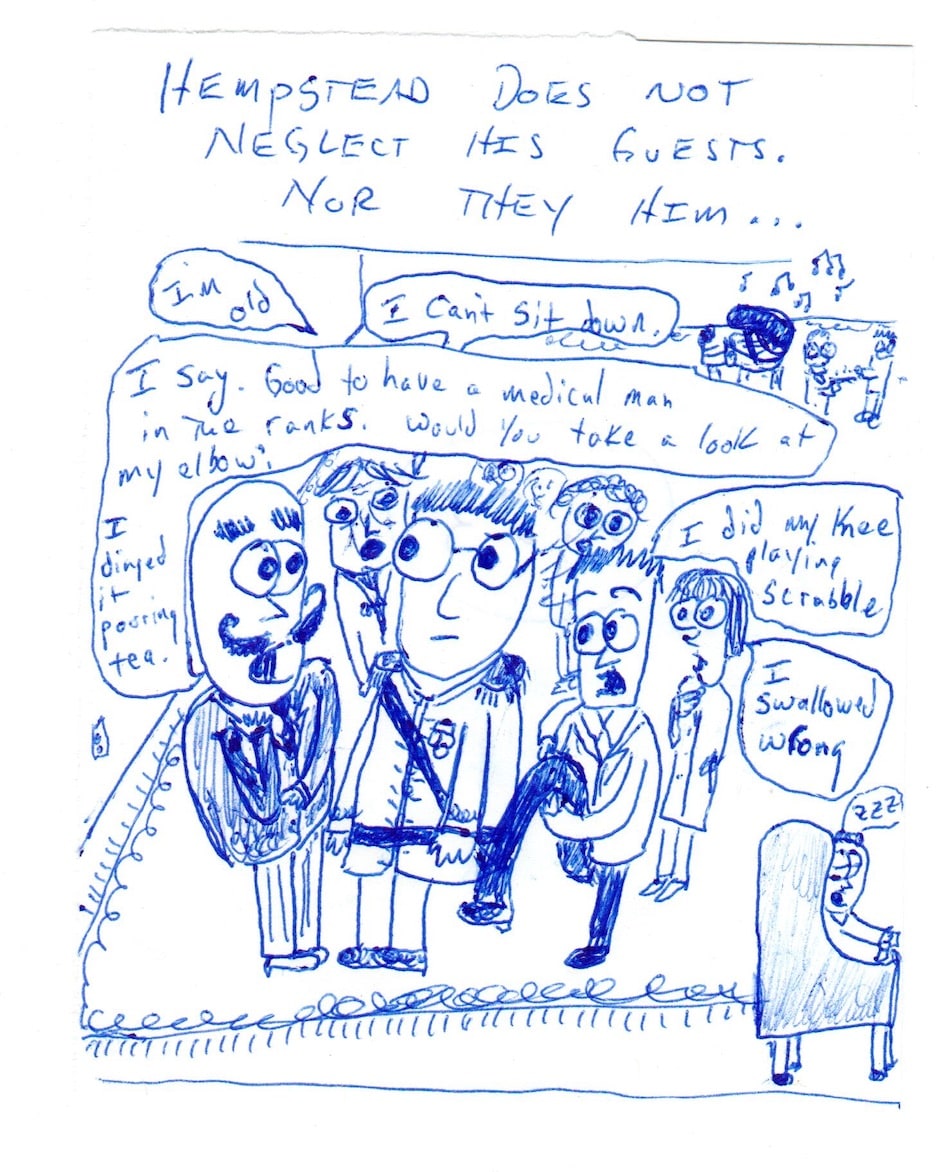 HEMPSTEAD DOES NOT
NEGLECT HIS GUESTS.
NOR THEY HIM...
I'm
old
I Can't Sit down.
I say. Good to have a medical man
in the ranks. Would you take a look at
my elbow?
I
dinged
it
pouring
tea.
I did my Knee
playing
Scrabble
I
swallowed
wrong
ZZZ